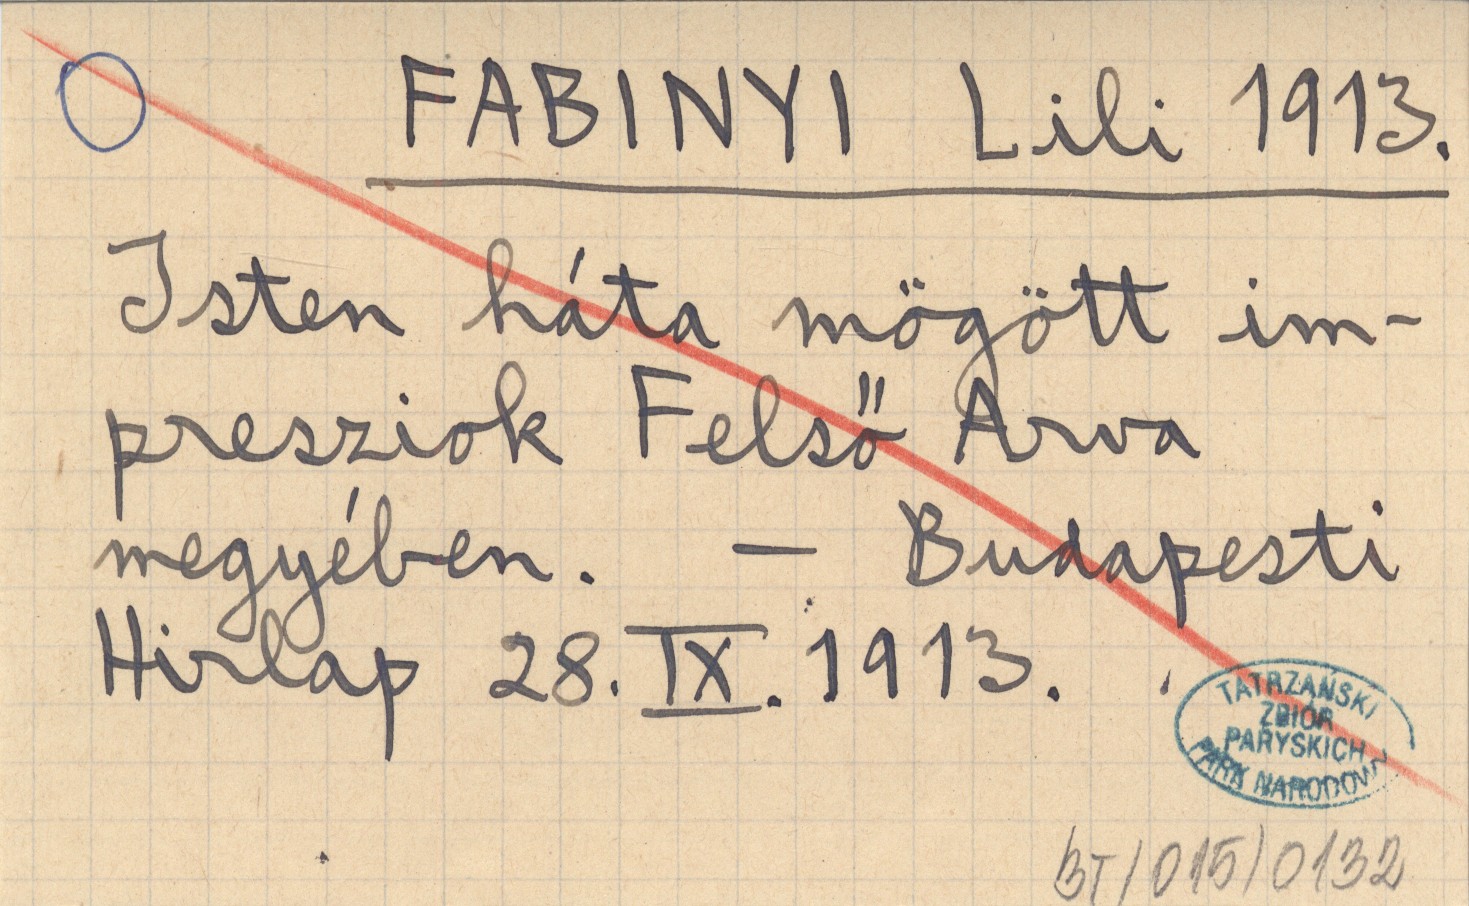 FABINYI Lili 1913.
Isten háta mögött im-
presziok Felső Arva
megyében. — Budapesti
Hirlap 28. IX. 1913.
TATRZAŃSKI
ZBIÓR
PARYSKICH
PARK NARODOWY
BT/015/0132